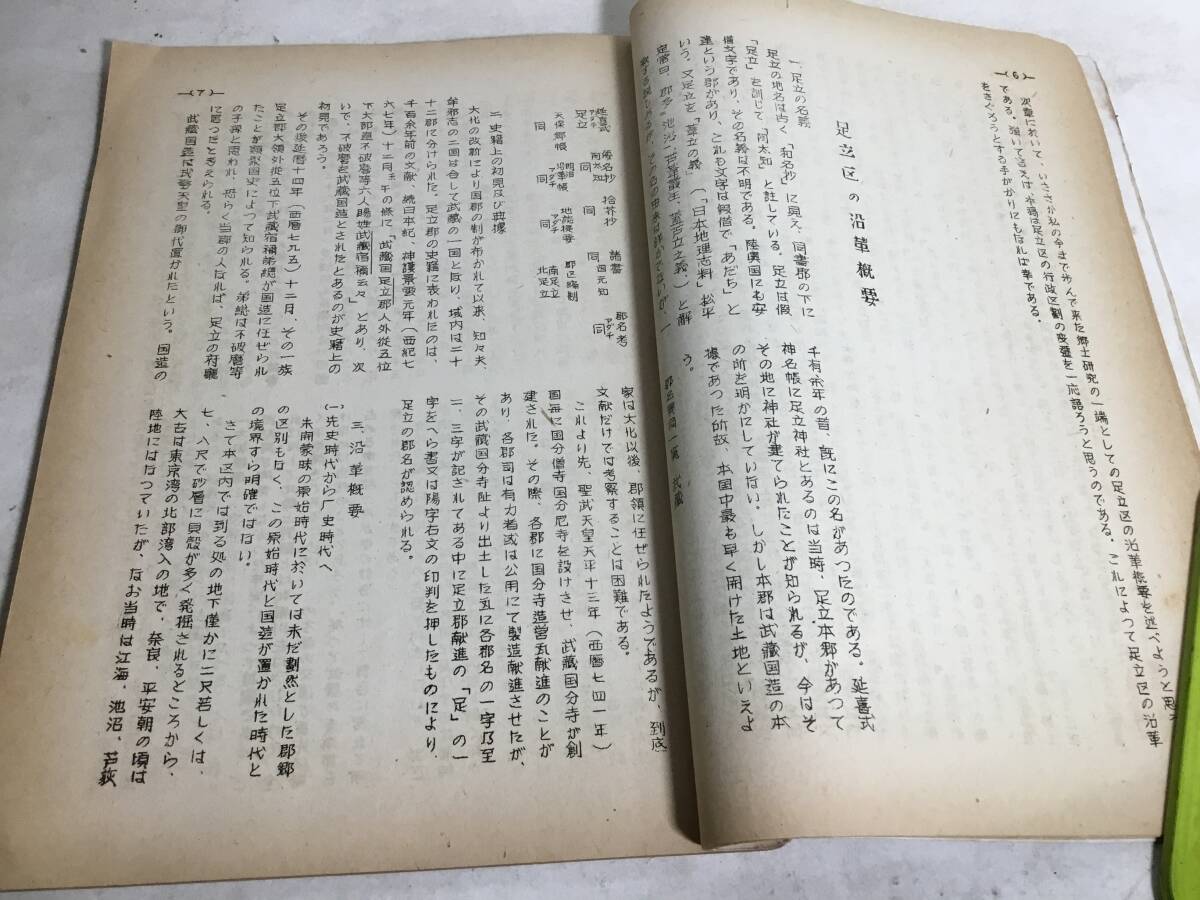 (6)
次章において、いささか私の今まで歩んで来た郷土研究の一端としての足立区の沿革概要を述べようと思
である。強いて云えば、本稿は足立区の行政区劃の変遷を一応語ろうと思うのである。これによって足立区の沿革
をさぐろうとする手がかりにもなれば幸である。
足立区の沿革概要
一、足立の名義
足立の地名は古く「和名抄」に見え、同書郡の下に
「足立」を訓じて「阿太知」と註している。足立は仮
借文字であり、その名義は不明である。陸奥国にも安
達という郡があり、これも文字は仮借で「あだち」と
いう。又足立を「葦立の義」(「日本地理志料」松平
定常曰、郡多池沼、芦葦叢生、蓋芦立之義)と解
千有余年の昔、既にこの名があったのである。延喜式
神名帳に足立神社とあるのは当時、足立本郷があって
その地に神社が建てられたことが知られるが、今はそ
の所を明かにしていない。しかし本郡は武蔵国造の本
據であった所故、本国中最も早く開けた土地といえよ
う。
(7)
延喜式 倭名抄 拾芥抄 諸書 郡名考
アダチ 足立 阿太知 同 同国元知 アダチ 同
天保郷帳 明治沿革帳 地誌提要 郡区編制
同 アダチ 同 アダチ 同 南足立 北足立
二、史籍上の初見及び典據
大化の改新により国郡の制が布かれて以来、知々夫、
牟邪志の二国は合して武蔵の一国となり、域内は二十
十二郡に分けられた。足立郡の史籍に表われたのは、
千百余年前の文献、続日本紀、神護景雲元年(西紀七
六七年)十二月壬午の條に、「武蔵国足立郡人外従五位
下丈部直不破麿等六人賜姓武蔵宿禰云々」とあり、次
いで、不破麿を武蔵国造とされたとあるのが史籍上の
初見であろう。
その後延暦十四年(西暦七九五)十二月、その一族
足立郡大領外従五位下武蔵宿禰弟総が国造に任ぜられ
たことが類聚国史によって知られる。弟総は不破麿等
の子孫と思われ、恐らく当郡の人なれば、足立の府廳
に居ったと考えられる。
武蔵国造は成務天皇の御代置かれたという。国造の
家は大化以後、郡領に任ぜられたようであるが、到底
文献だけでは考察することは困難である。
これより先、聖武天皇天平十三年(西暦七四一年)
国毎に国分僧寺国分尼寺を設けさせ、武蔵国分寺が創
建された。その際、各郡に国分寺造営瓦献進のことが
あり、各郡司は有力者或は公用にて製造献進させたが、
その武蔵国分寺趾より出土した瓦に各郡名の一字乃至
二、三字が記されてある中に足立郡献進の「足」の一
字をへら書又は陽字右文の印判を押したものにより、
足立の郡名が認められる。
三、沿革概要
(一)先史時代から厂史時代へ
未開蒙昧の原始時代においては未だ劃然とした郡郷
の区別もなく、この原始時代と国造が置かれた時代と
の境界すら明確ではない。
さて本区内では到る処の地下僅かに二尺若しくは、
七、八尺で砂層に貝殻が多く発掘されるところから、
大古は東京湾の北部湾入の地で、奈良、平安朝の頃は
陸地にはなっていたが、なお当時は江海、池沼、芦荻